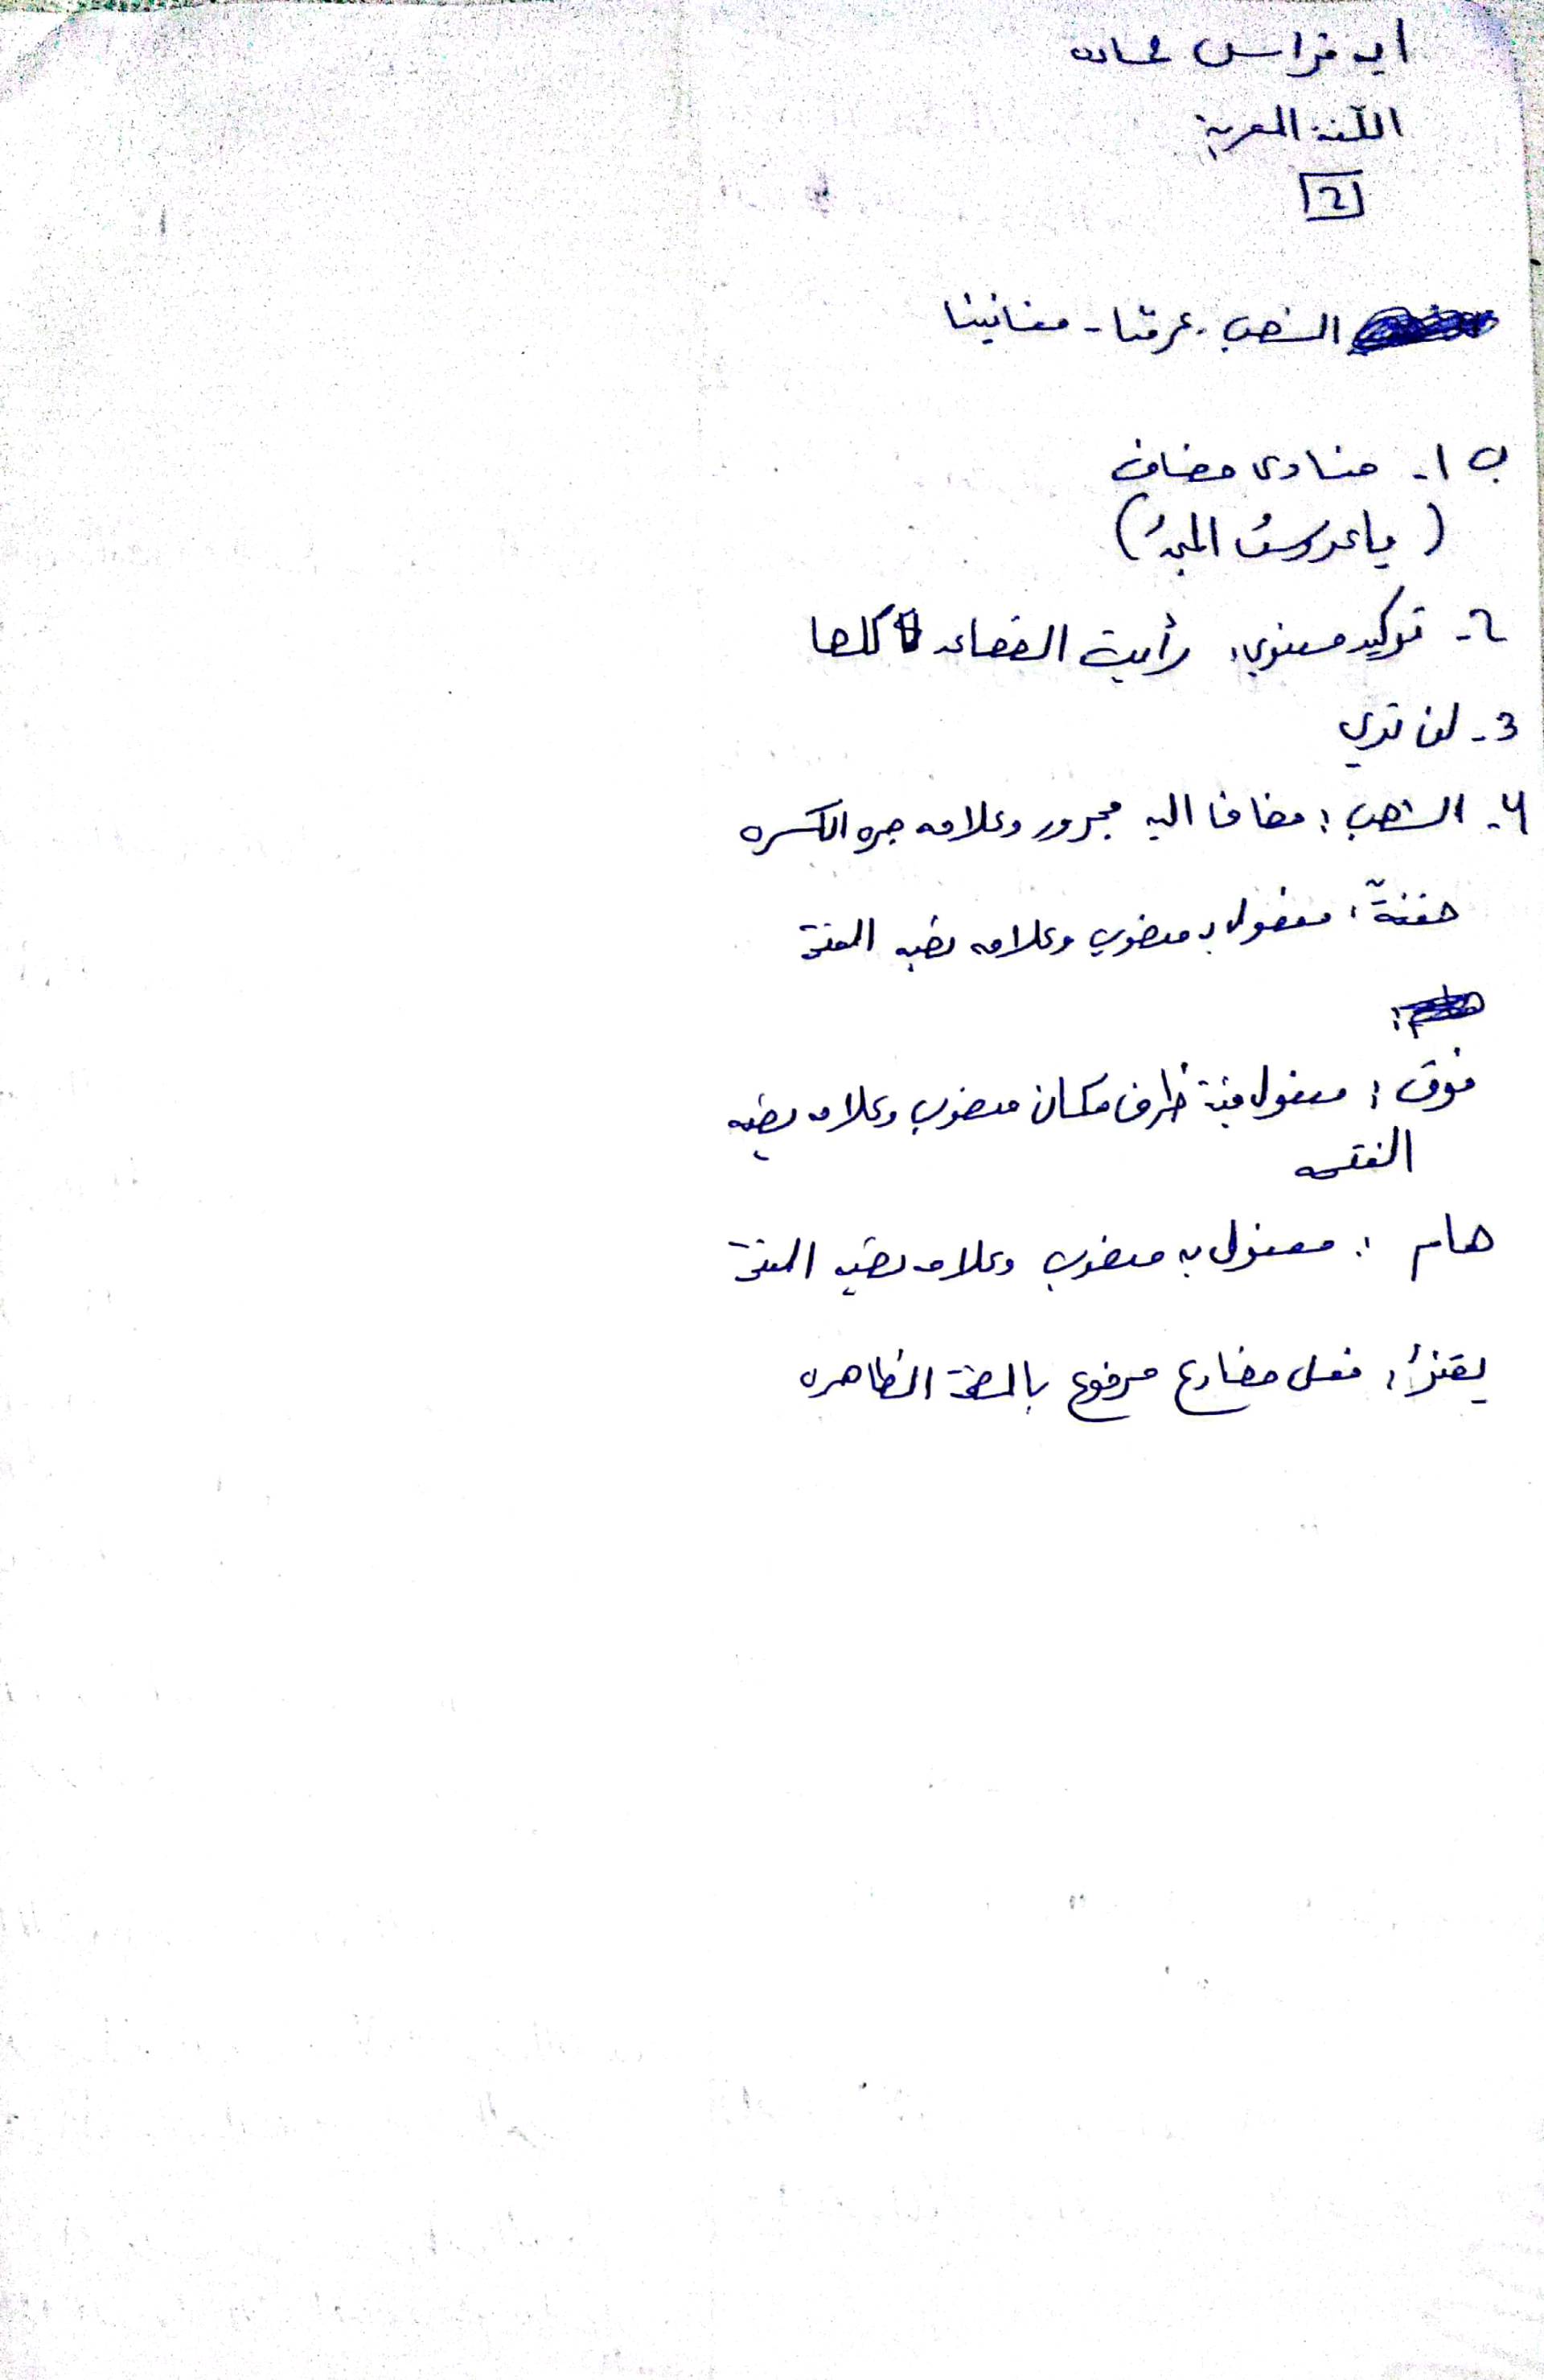 اللغة العربية
2
الشهب - عرقنا - مغانينا
ب 1- منادى مضاف
(يا عروس المجد)
2- توكيد معنوي: رأيت القصائد كلها
3- لن تري
4- الشهب: مضاف اليه مجرور وعلامه جره الكسره
حفنة: مفعول به منصوب وعلامه نصبه الفتحة
فوق: مفعول فيه ظرف مكان منصوب وعلامه نصبه
الفتحه
هام: مفعول به منصوب وعلامه نصبه الفتحة
فعل مضارع مرفوع بالضمة الظاهره